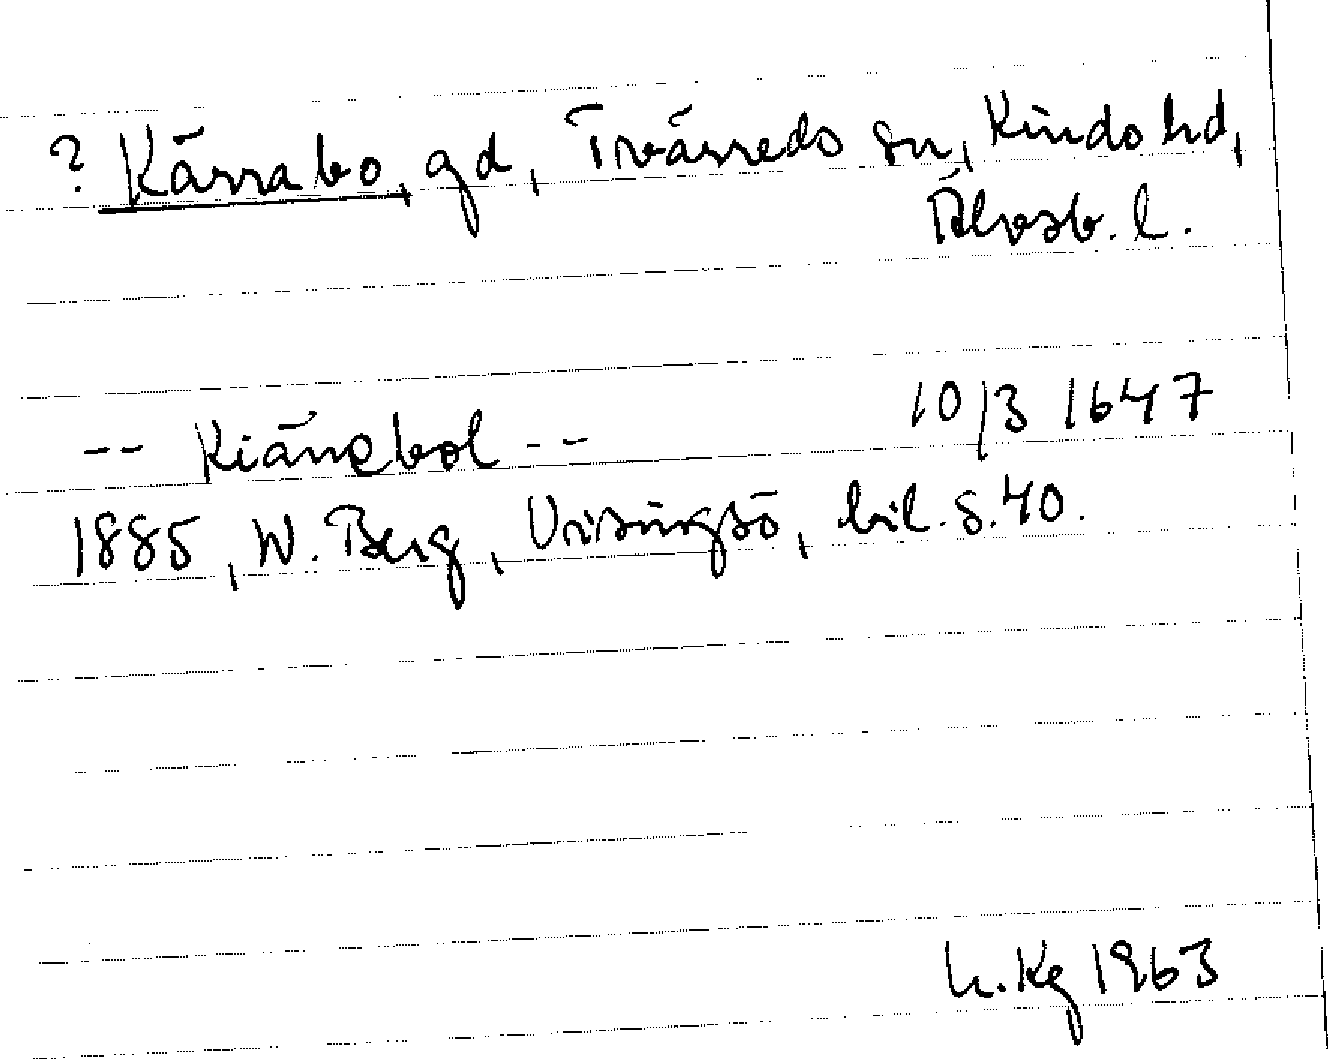 ? Kärrabo, gd, Tvärreds sn, Kinds hd,
Älvsb. l.
-- Kiärrebol -- 10/3 1647
1885, W. Berg, Visingsö, bil. s. 40.
h. Kg 1963